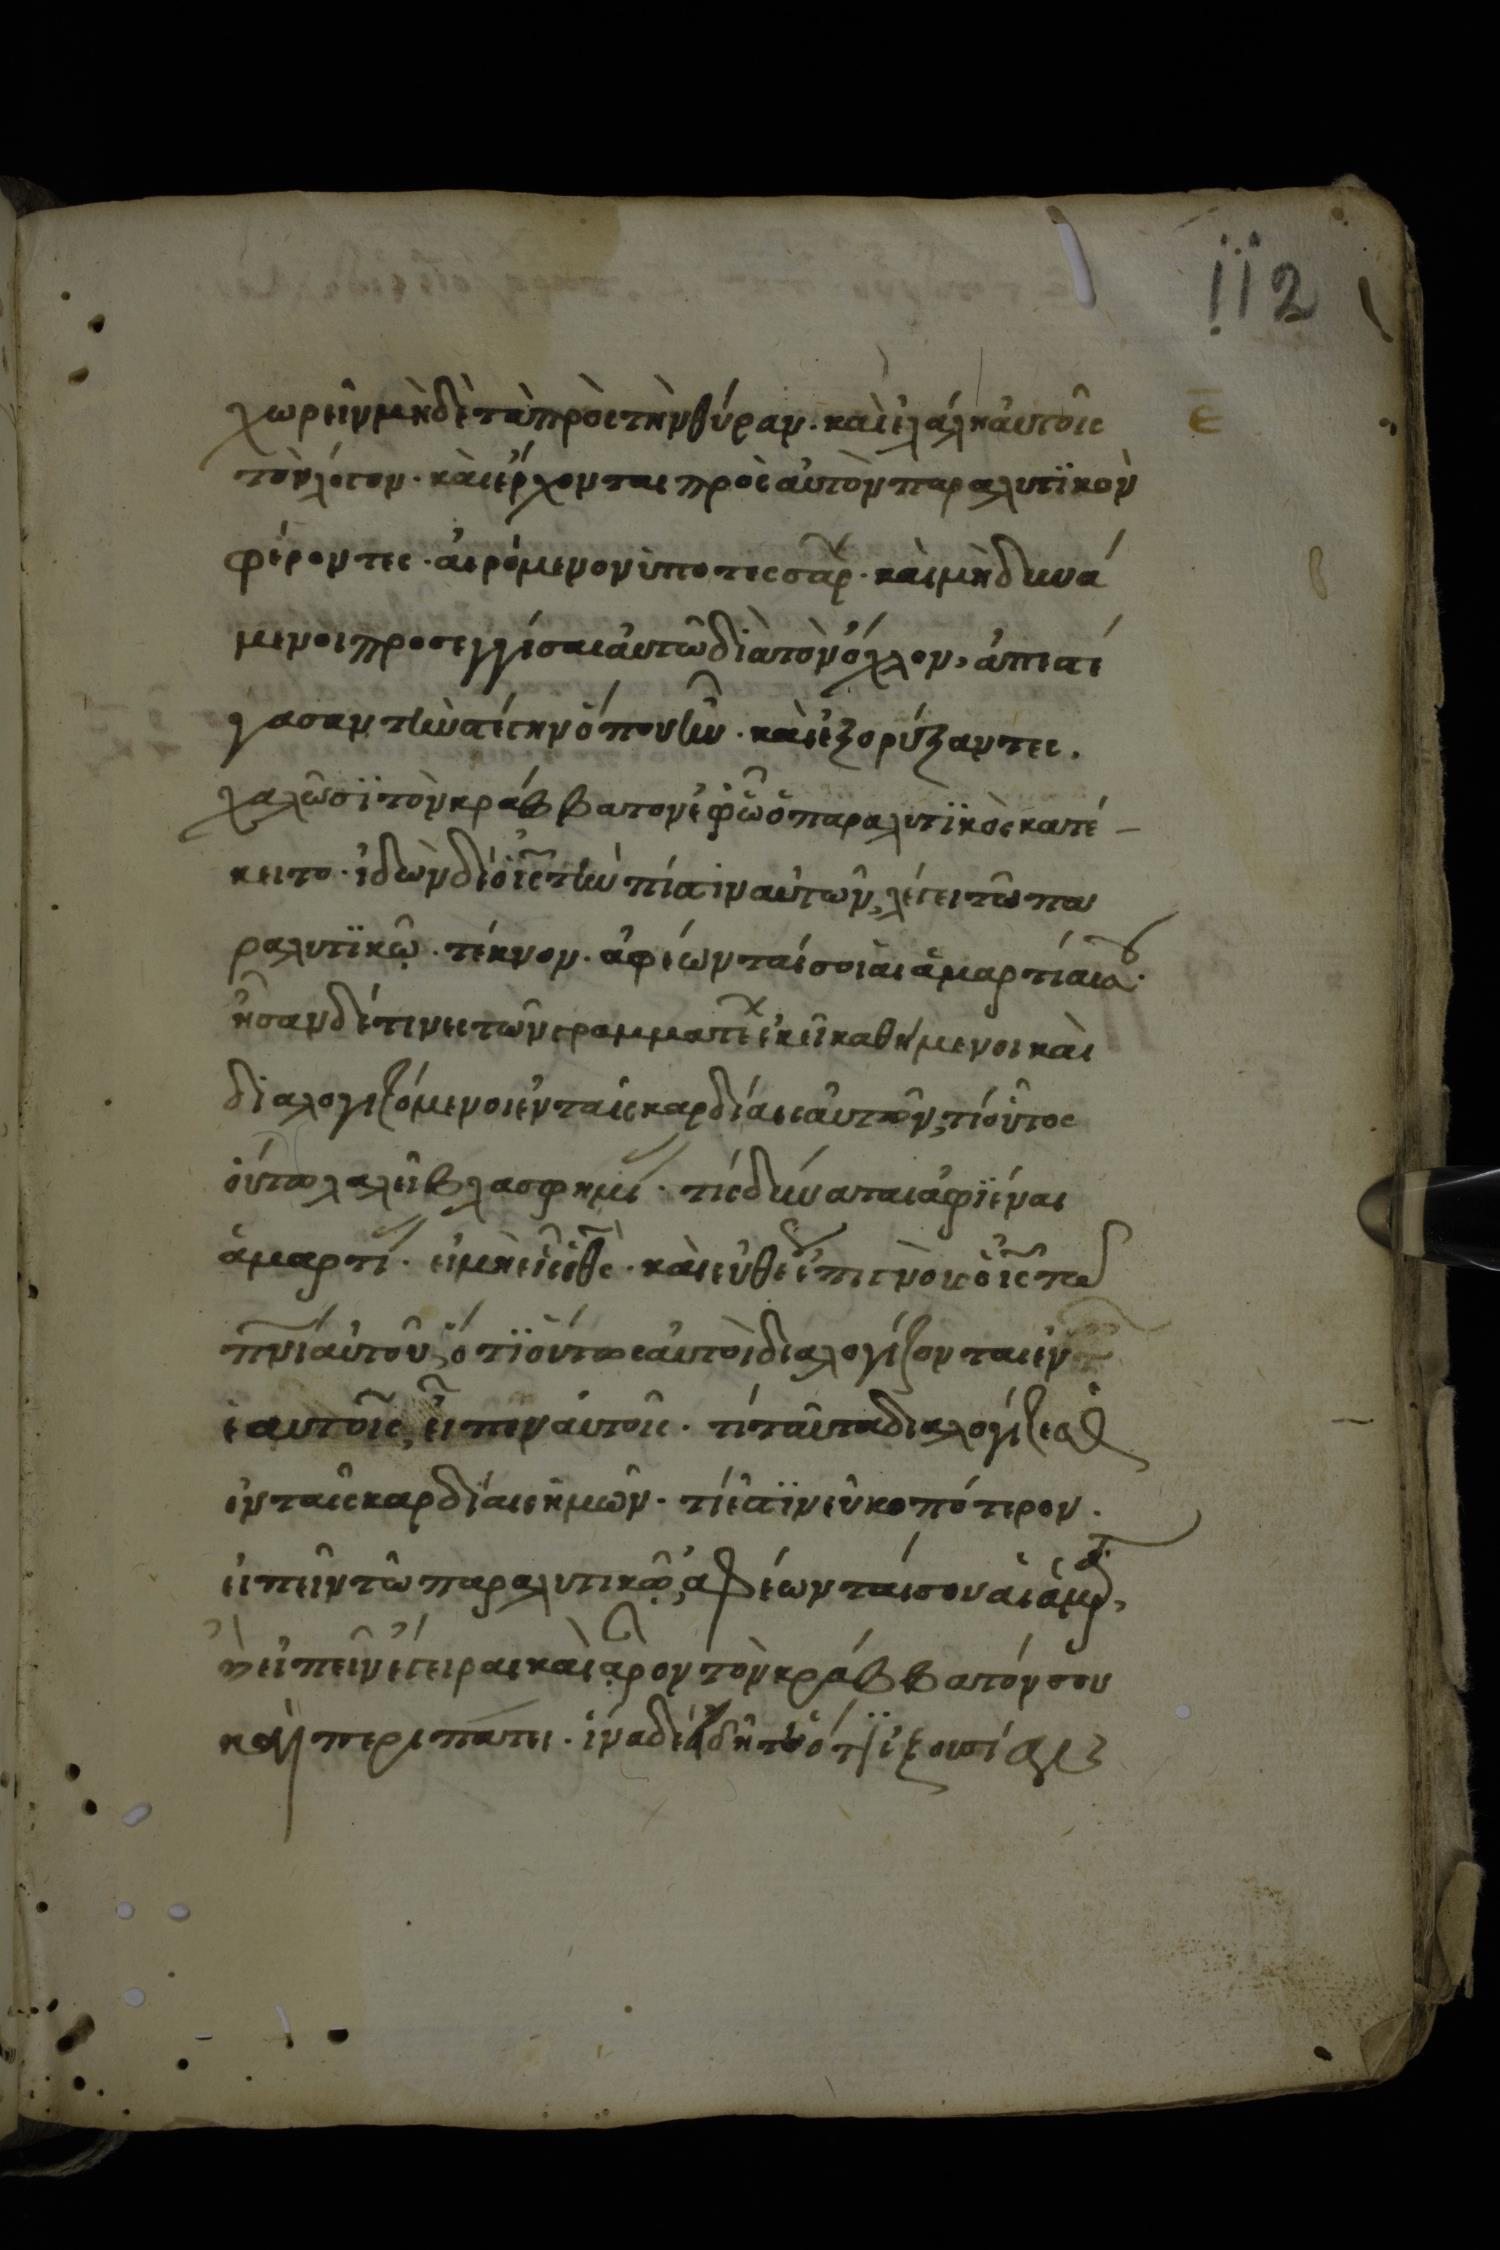 112
χωρεῖν μηδὲ τὰ πρὸς τὴν θύραν· καὶ ἐλάλη αὐτοῖς
ε̄
τὸν λόγον· καὶ ἔρχονται πρὸς αὐτὸν παραλυτϊκὸν
φέροντες· αἰρόμενον ὑπο τεσσάρ· καὶ μὴ δυνά
μενοι προσεγγίσαι αὐτῶ διὰ τὸν ὄχλον, ἀπεσέ
γασαν τὴν στέγην ὅπου ἦν· καὶ ἐξορύξαντες.
χαλῶσϊ τὸν κράββατον ἐφ ᾧ ὁ παραλυτϊκὸς κατέ
κειτο· ἰδὼν δὲ ὁ ις τὴν πίστιν αὐτῶν, λέγει τῶ πα
ραλυτϊκῷ· τέκνον· ἀφέωνταί σοι αἱ ἁμαρτίαι σου·
ἦσαν δέ τινες τῶν γραμματ ἐκεῖ καθήμενοι καὶ
διαλογιζόμενοι ἐν ταῖς καρδίαις αὐτῶν, τί οὗτος
οὕτω λαλεῖ βλασφημί· τίς δύναται ἀφϊέναι
ἁμαρτί· εἰ μὴ εἷς ὁ θς· καὶ εὐθέ ἐπιγνοὺς ὁ ις τῶ
πνι αὐτοῦ, ὅτϊ οὕτως αὐτοὶ διαλογίζονται ἐν
ἑαυτοῖς, εἶπεν αὐτοῖς· τί ταῦτα διαλογίζεσθ
ἐν ταῖς καρδίαις ἡμῶν· τί ἐστϊν εὐκοπότερον·
εἰπεῖν τῶ παραλυτικῷ, ἀφέωνταί σου αἱ ἁμρ,
ἢ εἰπεῖν ἔγειραι καὶ ἆρον τὸν κράββατόν σου
καὶ περιπάτει· ἵνα δὲ ὅτϊ ἐξουσί